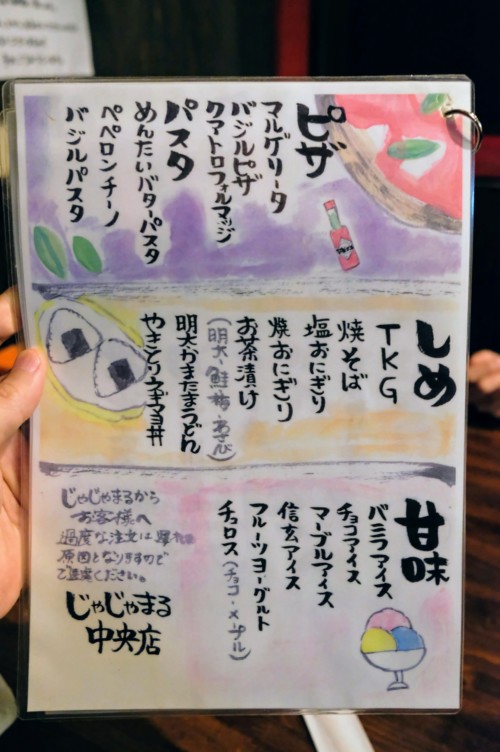 ピザ
マルゲリータ
バジルピザ
クアトロフォルマッジ
パスタ
めんたいバターパスタ
ペペロンチーノ
バジルパスタ
しめ
TKG
焼そば
塩おにぎり
焼おにぎり
お茶漬け
(明太・鮭・梅・わさび)
明太かまたまうどん
やきとりネギマヨ丼
甘味
バニラアイス
チョコアイス
マーブルアイス
信玄アイス
フルーツヨーグルト
チュロス(チョコ・メープル)
じゃじゃまるから
お客様へ
過度な注文は
原因となりますので
ご遠慮ください。
じゃじゃまる
中央店